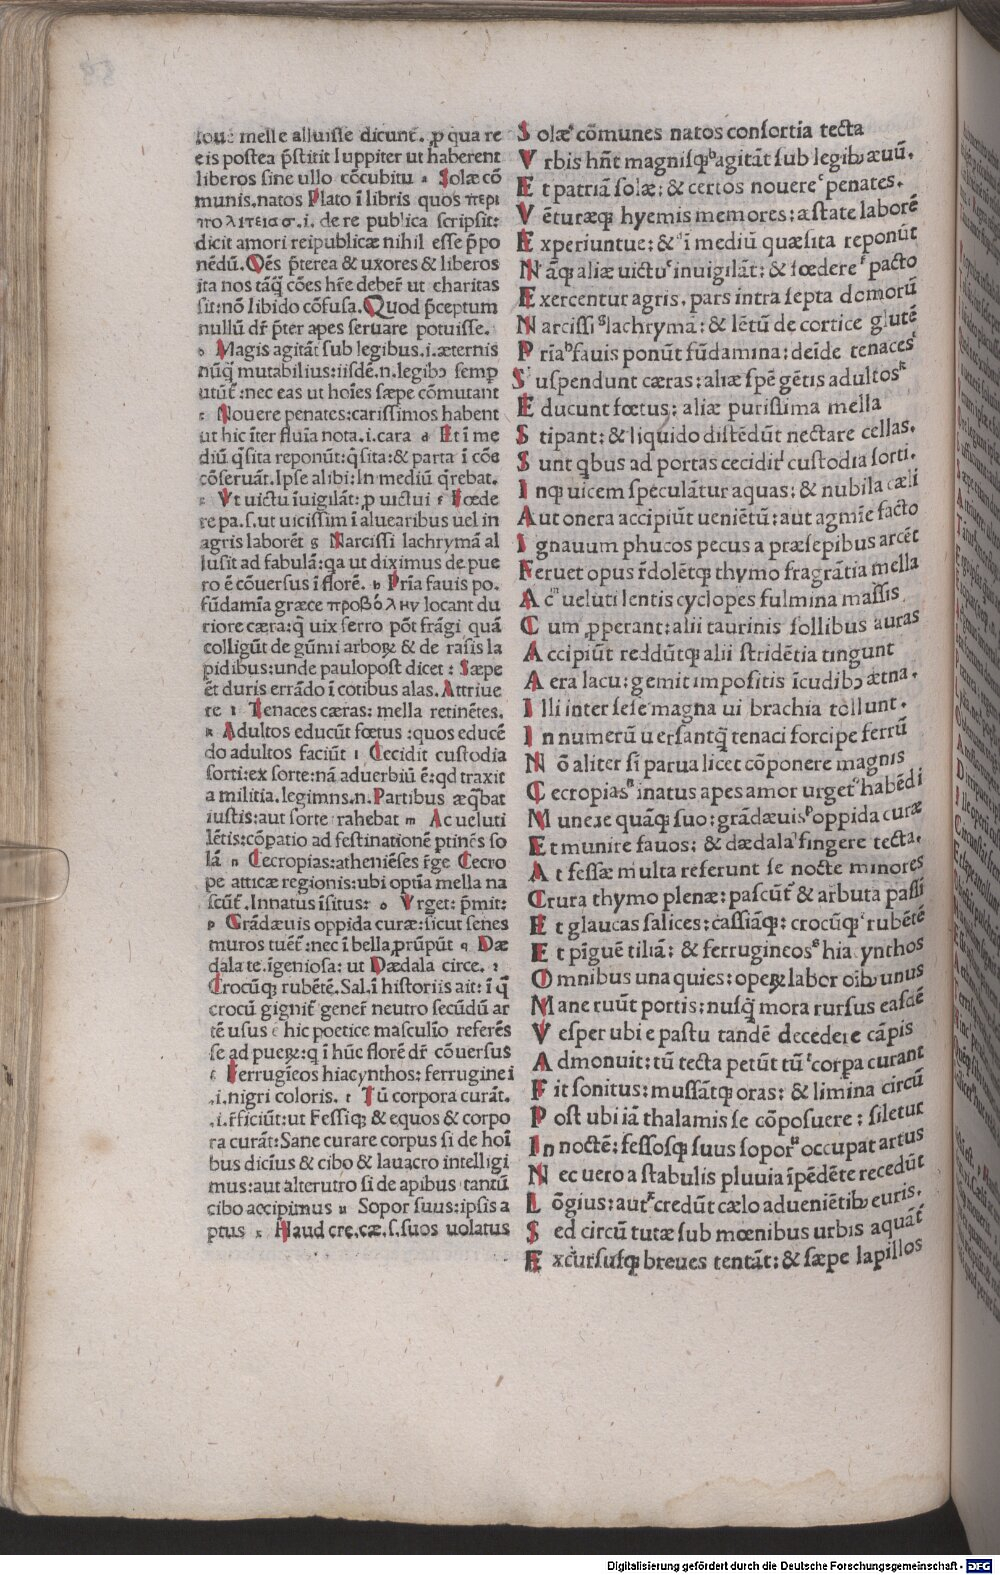 Ioue melle alluisse dicunt̃. ꝓ qua re
eis postea p̃stitit Iuppiter ut haberent
liberos sine ullo cõcubitu a Solæ cõ
munis.natos Plato ĩ libris quos περι
πολιτειασ.i. de re publica scripsit:
dicit amori reipublicæ nihil esse p̃po
nẽdũ. Oẽs p̃terea & uxores & liberos
ita nos tãꝙ cões hr̃e deber̃ ut charitas
sit:nõ libido cõfusa. Quod p̃ceptum
nullũ dr̃ p̃ter apes seruare potuisse.
b Magis agitãt sub legibus.i.æternis
nũꝙ mutabilius:iisdẽ.n.legibɔ semꝑ
utũt̃:nec eas ut hoĩes sæpe cõmutant
c Nouere penates:carissimos habent
ut hic ĩter fluuia nota.i.cara d Et ĩ me
diũ q̃sita reponũt:q̃sita:& parta ĩ cõe
cõseruãt.Ipse alibi:In mediũ q̃rebat.
e Vt uictu ĩuigilãt:ꝓ uictui f Fœde
re pa.s.ut uicissim ĩ aluearibus uel in
agris laborẽt g Narcissi lachrymã al
lusit ad fabulã:qa ut diximus de pue
ro ẽ cõuersus ĩ florẽ. h Pria fauis po.
fũdamĩa græce προβόλην locant du
riore cæra:q̃ uix ferro põt frãgi quã
colligũt de gũmi arboꝝ & de rasis la
pidibus:unde paulopost dicet: Sæpe
ẽt duris errãdo ĩ cotibus alas. Attriue
re i Tenaces cæras: mella retinẽtes.
k Adultos educũt fœtus:quos educẽ
do adultos faciũt l Cecidit custodia
sorti:ex sorte:nã aduerbiũ ẽ:qd traxit
a militia.legimns.n.Partibus æq̃bat
iustis:aut sorte trahebat m Ac ueluti
lẽtis:cõpatio ad festinationẽ ptinẽs so
lã n Cecropias:atheniẽses r̃ge Cecro
pe atticæ regionis:ubi optĩa mella na
scũt̃. Innatus ĩsitus: o Vrget: p̃mit:
p Grãdæuis oppida curæ:sicut senes
muros tuẽt̃:nec ĩ bella ꝓrũpũt q Dæ
dala te.ĩgeniosa: ut Dædala circe. r
Crocũꝙ rubẽtẽ. Sal.ĩ historiis ait: ĩ q̃
crocũ gignit̃ gener̃ neutro secũdũ ar
tẽ usus ẽ hic poetice masculĩo referẽs
se ad pueꝝ:q ĩ hũc florẽ dr̃ cõuersus
s Ferrugĩeos hiacynthos: ferruginei
.i.nigri coloris. t Tũ corpora curãt.
.i.r̃ficiũt:ut Fessiꝙ & equos & corpo
ra curãt:Sane curare corpus si de hoĩ
bus dicĩus & cibo & lauacro intelligi
mus:aut alterutro si de apibus tantũ
cibo accipimus u Sopor suus:ipsis a
ptus x Haud cre.cæ.s.suos uolatus
Solæ a cõmunes natos consortia tecta
Vrbis hñt magnisꝙ b agitãt sub legibɔ æuũ.
Et patriã solæ: & certos nouere c penates.
Vẽturæꝙ hyemis memores: æstate laborẽ
Experiuntue: & d ĩ mediũ quæsita reponũt
Nãꝙ aliæ uictu e inuigilãt: & fœdere f pacto
Exercentur agris. pars intra septa domorũ
Narcissi g lachrymã: & lẽtũ de cortice glutẽ
Priã h fauis ponũt fũdamina: deĩde tenaces i
Suspendunt cæras: aliæ spẽ gẽtis adultos k
Educunt fœtus: aliæ purissima mella
Stipant: & liquido distẽdũt nectare cellas.
Sunt qbus ad portas cecidit l custodia sorti.
Inꝙ uicem speculãtur aquas: & nubila cæli
Aut onera accipiũt ueniẽtũ: aut agmĩe facto
Ignauum phucos pecus a præsepibus arcẽt
Feruet opus r̃dolẽtꝙ thymo fragrãtia mella
Ac m ueluti lentis cyclopes fulmina massis
Cum ꝓperant: alii taurinis follibus auras
Accipiũt reddũtꝙ alii stridẽtia tingunt
Aera lacu: gemit impositis ĩcudibɔ ætna.
Illi inter sese magna ui brachia tollunt.
In numerũ uersantꝙ̃ tenaci forcipe ferrũ
Nõ aliter si parua licet cõponere magnis
Cecropias n inatus apes amor urget o habẽdi
Munere quãꝙ suo: grãdæuis p oppida curæ
Et munire fauos: & dædala q fingere tecta.
At fessæ multa referunt se nocte minores
Crura thymo plenæ: pascũt̃ & arbuta passĩ
Et glaucas salices: cassiãꝙ: crocũꝙ r rubẽtẽ
Et pĩguẽ tiliã: & ferrugineos s hiacynthos
Omnibus una quies: opeꝝ labor oĩbɔ unus
Mane ruũt portis: nusꝙ̃ mora rursus easdẽ
Vesper ubi e pastu tandẽ decedere cãpis
Admonuit: tũ tecta petũt tũ t corpa curant
Fit sonitus: mussãtꝙ oras: & limina circũ
Post ubi iã thalamis se cõposuere: siletur
In noctẽ: fessosꝙ suus sopor u occupat artus
Nec uero a stabulis pluuia ĩpẽdẽte recedũt
Lõgius: aut x credũt cælo adueniẽtibɔ euris.
Sed circũ tutæ sub mœnibus urbis aquãt̃
Excursusꝙ breues tentãt: & sæpe lapillos
Digitalisierung gefördert durch die Deutsche Forschungsgemeinschaft - DFG